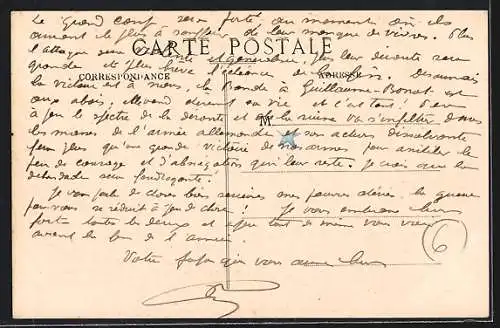 Le Grand coup sera porté au moment où ils
auront le plus à souffrir de leur manque de vivres. Plus
l'attaque sera et générale, plus leur déroute sera
CARTE POSTALE
grande et plus brève l'échéance de la fin. Désormais
CORRESPONDANCE
ADRESSE
la victoire est à nous, la Bande à Guillaume-Bonnot est
aux abois, elle vend sa vie et c'est tout !
à peu le spectre de la déroute et de la ruine va s'infiltrer dans
M
les de l'armée allemande et son action dissolvante
fera plus qu'une grande victoire de nos armes pour annihiler le
peu de courage et d'abnégation qui leur reste. Je crois que la
débandade sera foudroyante !
Je vous parle de choses bien sérieuses mes pauvres chéries, la guerre
pour vous se réduit à peu de chose ! Je vous embrasse bien
fort toutes les deux et
avant la fin de l'année.
Votre papa qui vous aime bien
6